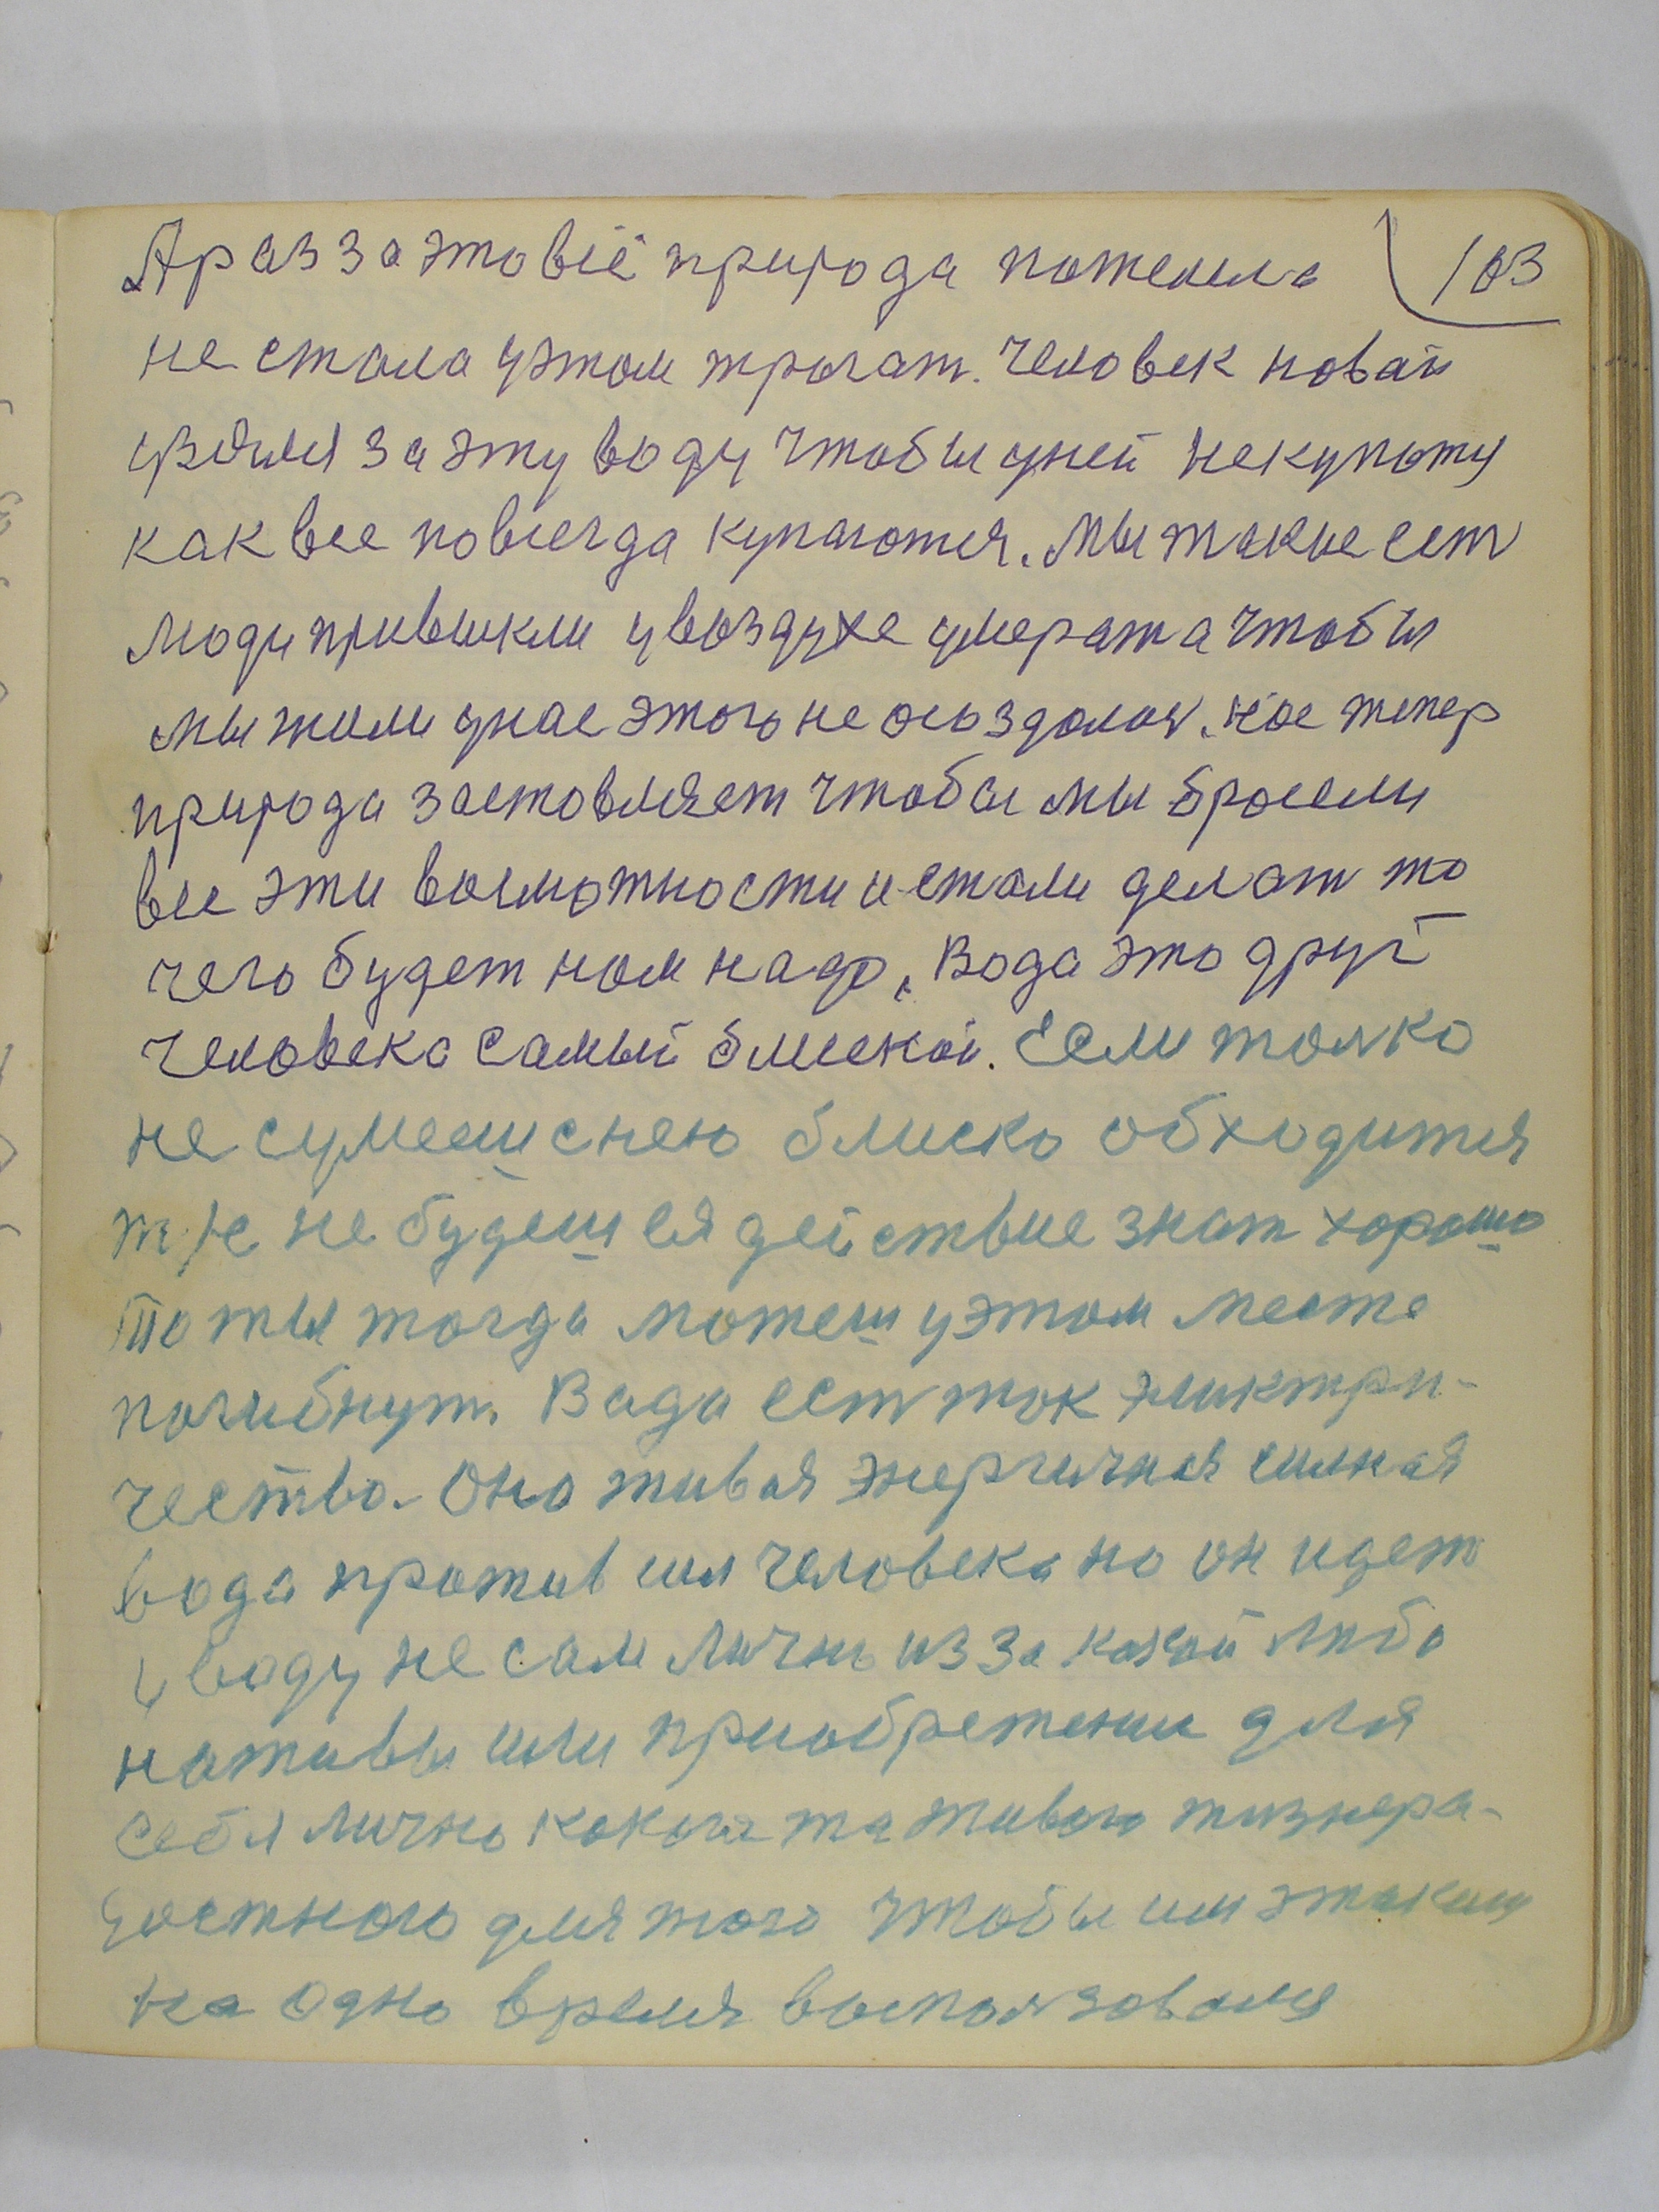 А раз за это всё природа пожелела 103
не стала у этом трогат. Человек новай
узялся за эту воду чтобы у ней не купатся
как все повсегда купаются. Мы такие ест
люди привыкли у воздухе умерат а чтобы
мы жили у нас этого не создолося. Нас тепер
природа заставляет чтобы мы бросели
все эти возможности и стали делат то
чего будет нам надо. Вода это друг
человека самый блиской. Если толко
не сумееш с нею блиско обходится
т/е не будеш ея действие знат хорошо
то ты тогда можеш у этом месте
погибнут. Вада ест ток эликтри-
чество. Она живая энергичная силная
вода против сил человека но он идет
у воду не сам лично из за какой либо
наживы или приобретении для
себя лично какого та живого жизнера-
достного для того чтобы им этаким
на одно время воспользовался